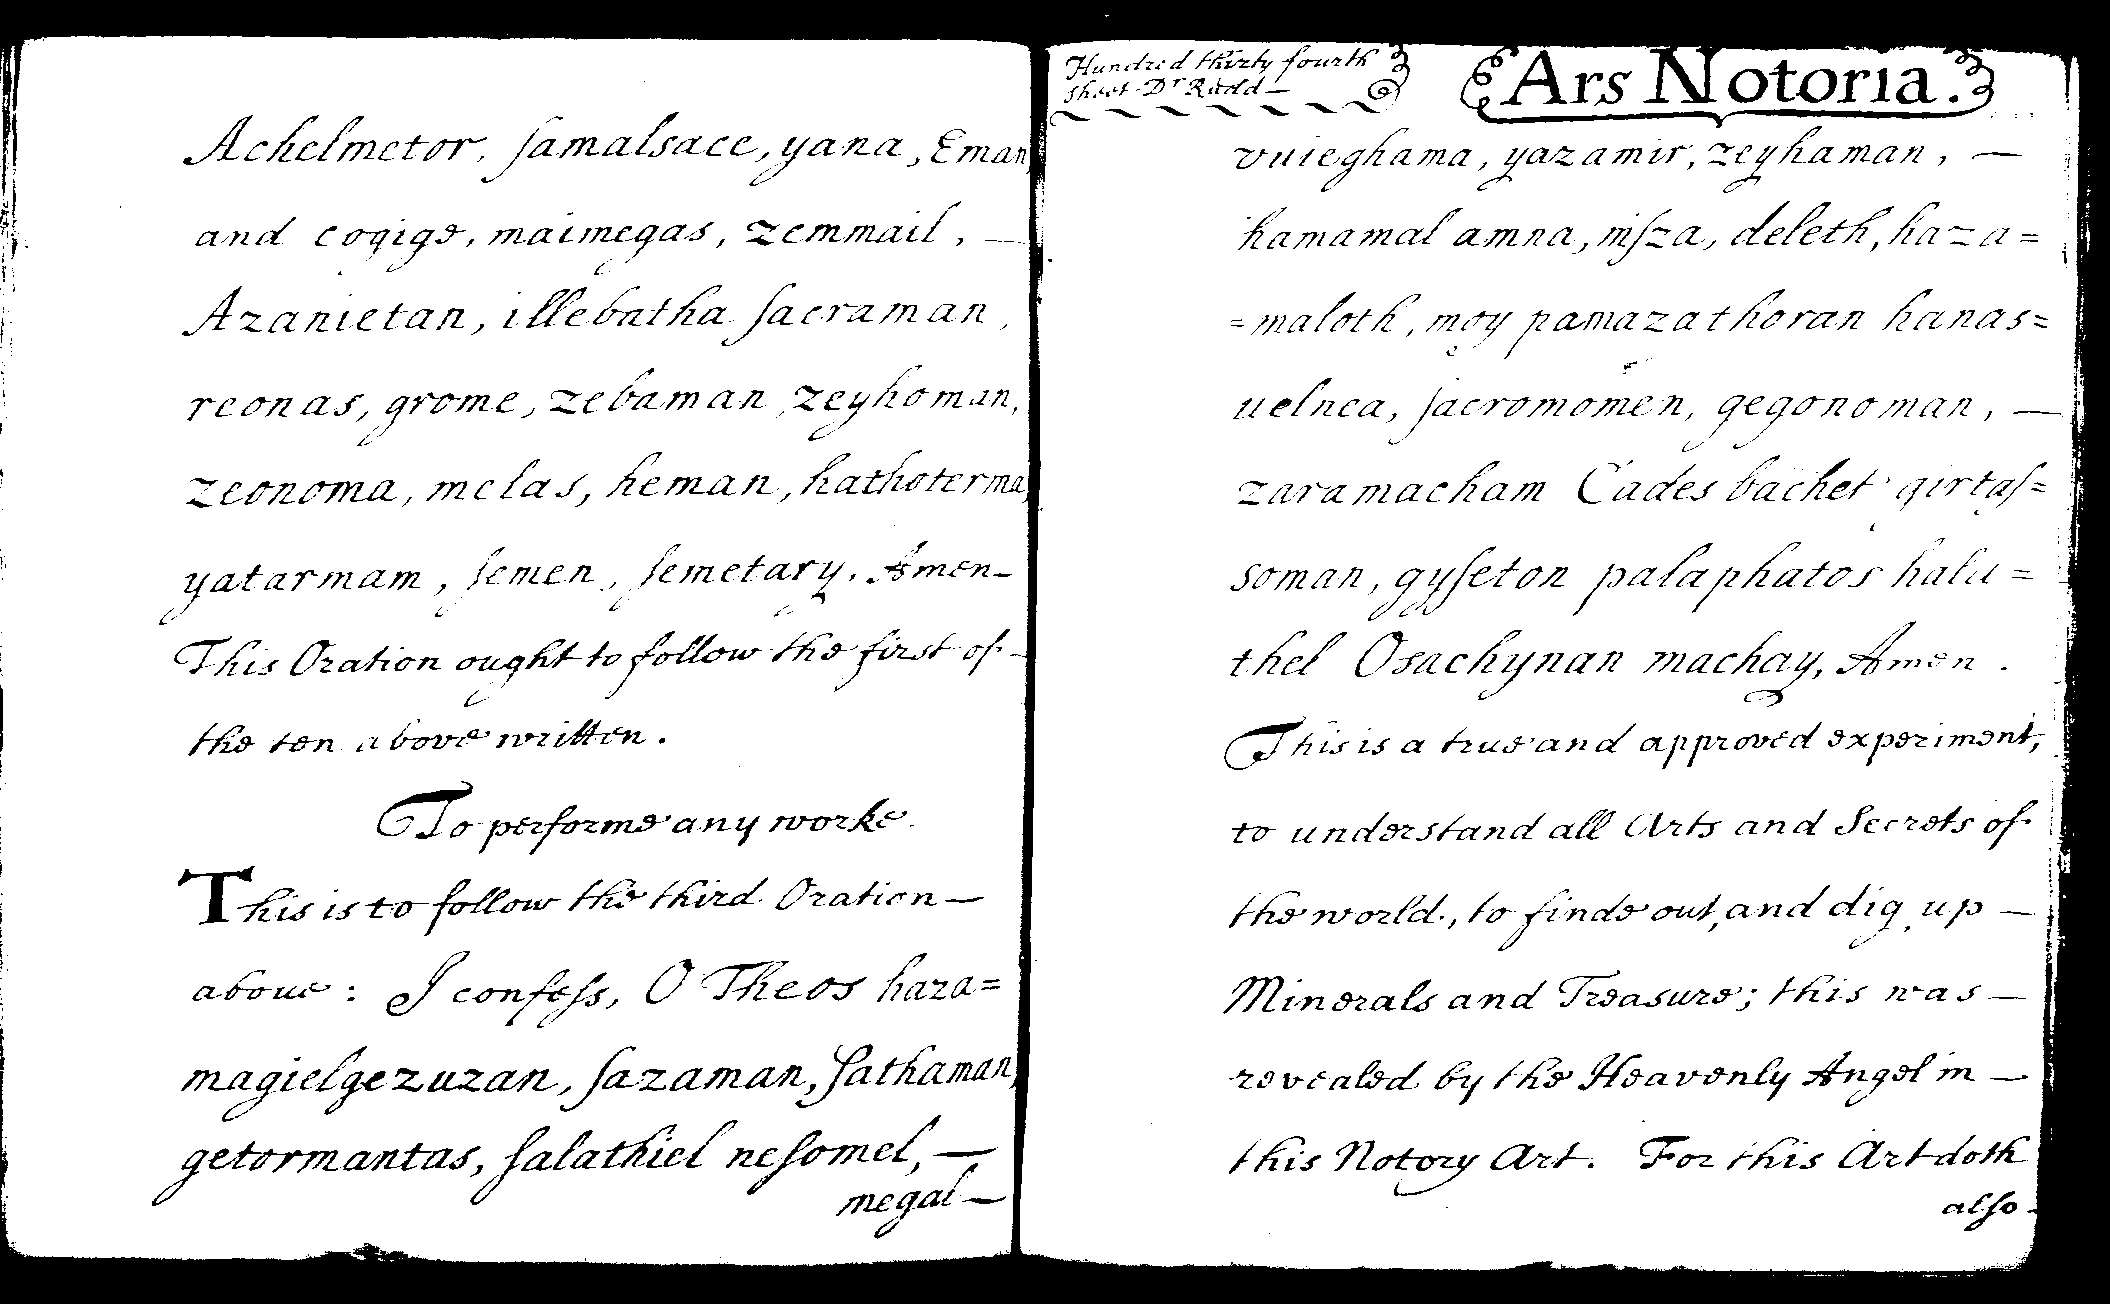 Achelmetor, samalsace, yana, Eman,
and cogige, maimegas, zemmail, —
Azanietan, illebatha sacraman,
reonas, grome, zebaman, zeyhoman,
zeonoma, melas, heman, hathoterma,
yatarmam, semen, semetary. Amen—
This Oration ought to follow the first of—
the ten above written.
To performe any worke.
This is to follow the third Oration—
above: I confess, O Theos haza=
magielgezuzan, sazaman, Sathaman,
getormantas, salathiel nesomel, —
megal—
Hundred thirty fourth
sheet Dr Rudd—
Ars Notoria.
vuieghama, yazamir, zeyhaman, —
hamamal amna, nisza, deleth, haza=
=maloth, moy pamazathoran hanas=
uelnea, sacromomen, gegonoman, —
zaramacham Cades bachet girtas=
soman, gyseton palaphatos halu=
thel Osachynan machay, Amen.
This is a true and approved experiment,
to understand all Arts and Secrets of
the world, to finde out, and dig up —
Minerals and Treasure; this was —
revealed by the Heavenly Angel in —
this Notory Art. For this Art doth
also—